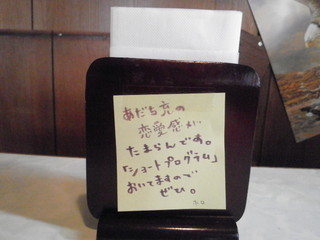 あだち充の
恋愛感が
たまらんです。
「ショートプログラム」
おいてますので
ぜひ。